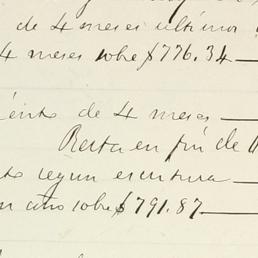 de 4 meses último
4 meses sobre $776.34
de 4 meses
Resta en fin de
segun escritura
año sobre $791.87